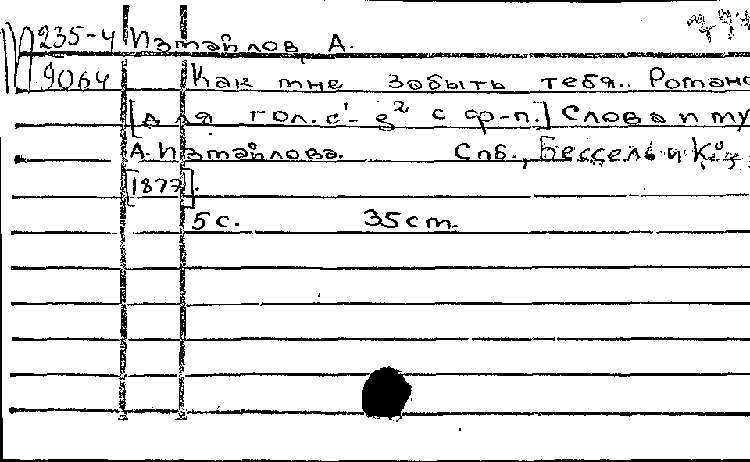 М 235-4 Измайлов, А.
9064 Как мне забыть тебя.. Романс
[Для гол. c¹-g² с ф-п.] Слова и му
А. Измайлова. Спб., Бессель и Кº,
[1877].
5 с. 35 см.